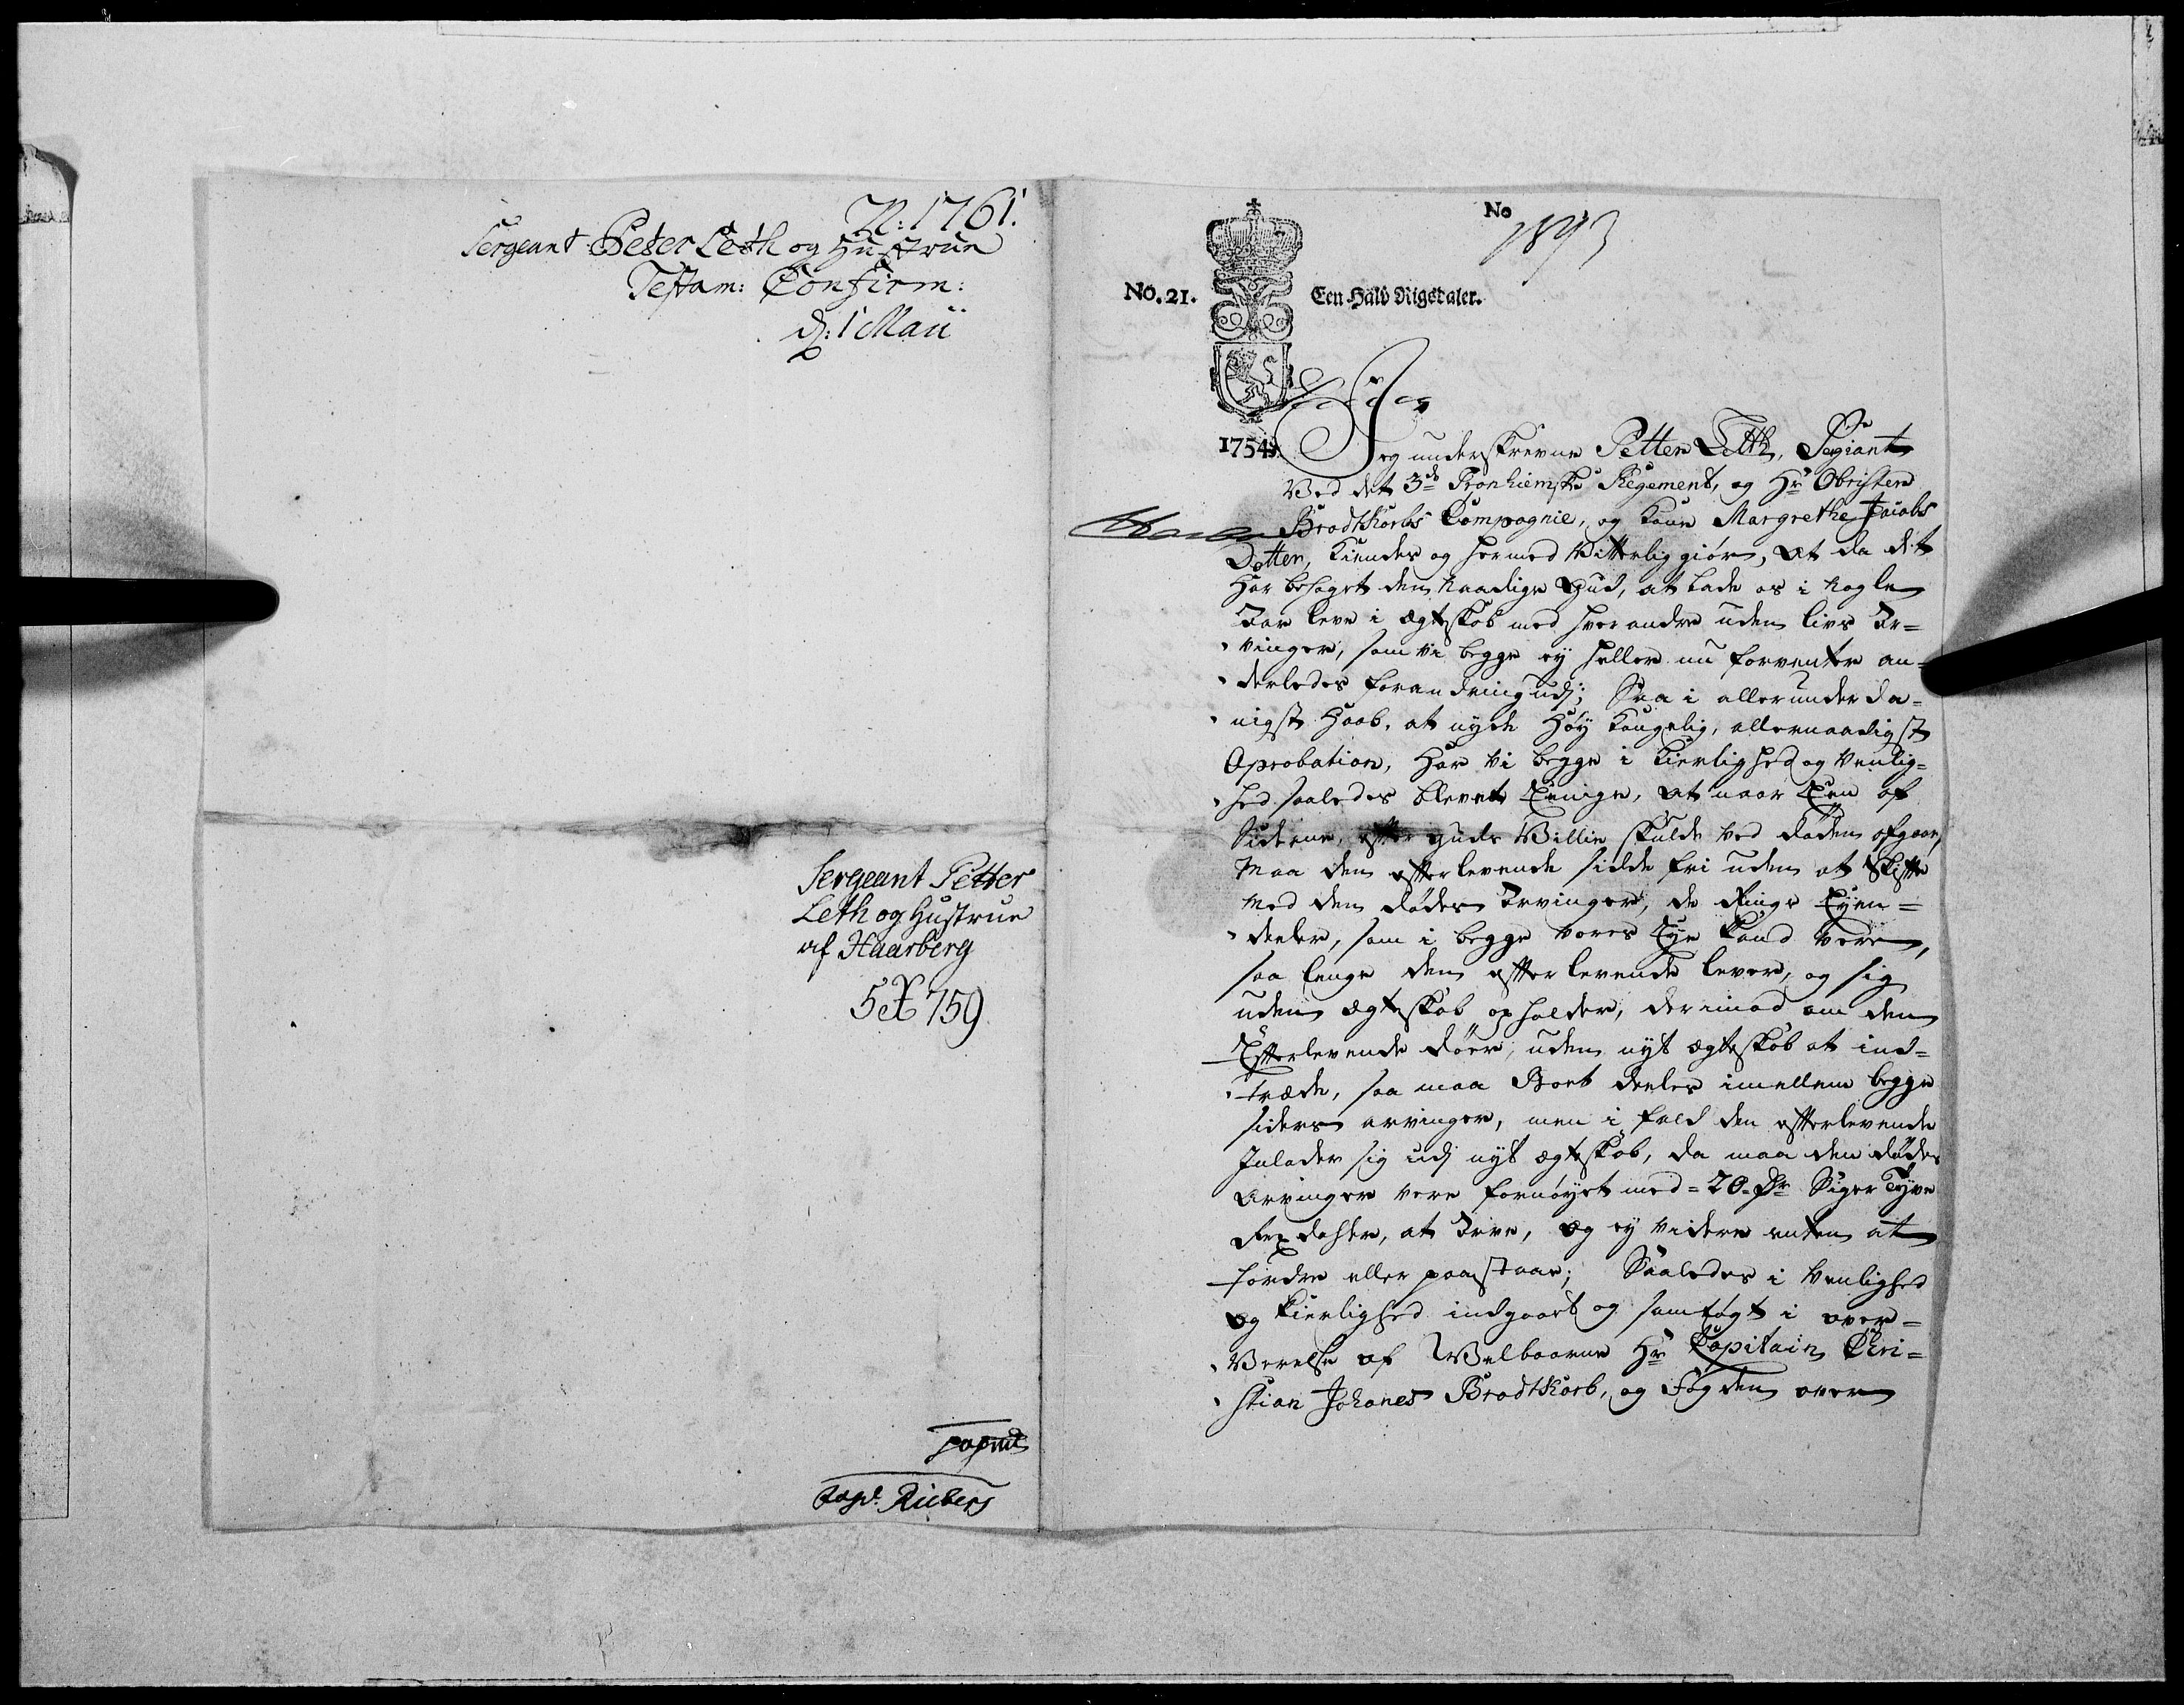 N: 1761.
Sergeant Peter Leth og Hustrue
Testam: Confirm:
d: 1 Maii
Sergeant Petter
Leth og Hustrue
af Haarberg
5 X 759
Rieberg
No
1893
No. 21.
Een Halv Rigsdaler.
1754.
Jeg underskrevne Petter Leth, Sergiant
Ved det 3de Tronhiemske Regement, og Hr Obristen
Brodtkorbs Compagnie, og Kone Margrethe Jacobs
Dotter, Kiendes og hermed Vitterlig giør, at da det
Har behaget den Naadige Gud, at lade os i nogle
Aar leve i ægteskab med hver andre uden livs Ar-
vinger, som vi begge ey heller nu forventer an-
derledes forandring udj; Saa i allerunderda-
nigst Haab, at nyde Høy Kongelig, allernaadigst
Aprobation, Har vi begge i Kierlighed og venlig-
hed saaledes blevet Eenige, at naar Een af
Siderne, efter Guds Villie skulde ved døden afgaae,
Maa den efterlevende sidde fri uden at Skifte
med den dødes Arvinger, de Ringe Eyen-
deeler, som i begge vores Eye Kand være,
saa lenge den efterlevende lever, og sig
uden ægteskab opholder, derimod om den
Efterlevende døer, uden nyt ægteskab at ind-
træde, saa maa Boet deeles imellem begge
siders arvinger, men i fald den efterlevende
Inlader sig udj nyt ægteskab, da maa den dødes
Arvinger være fornøyet med = 20 = Rdr Siger Tyve
Rixdaler, at Arve, og ey videre enten at
fordre eller paastaae; Saaledes i venlighed
og Kierlighed indgaaet og samtøgt i over-
Værelse af Welbaarne Hr Capitain Chri-
stian Johanes Brodtkorb, og Fogden over